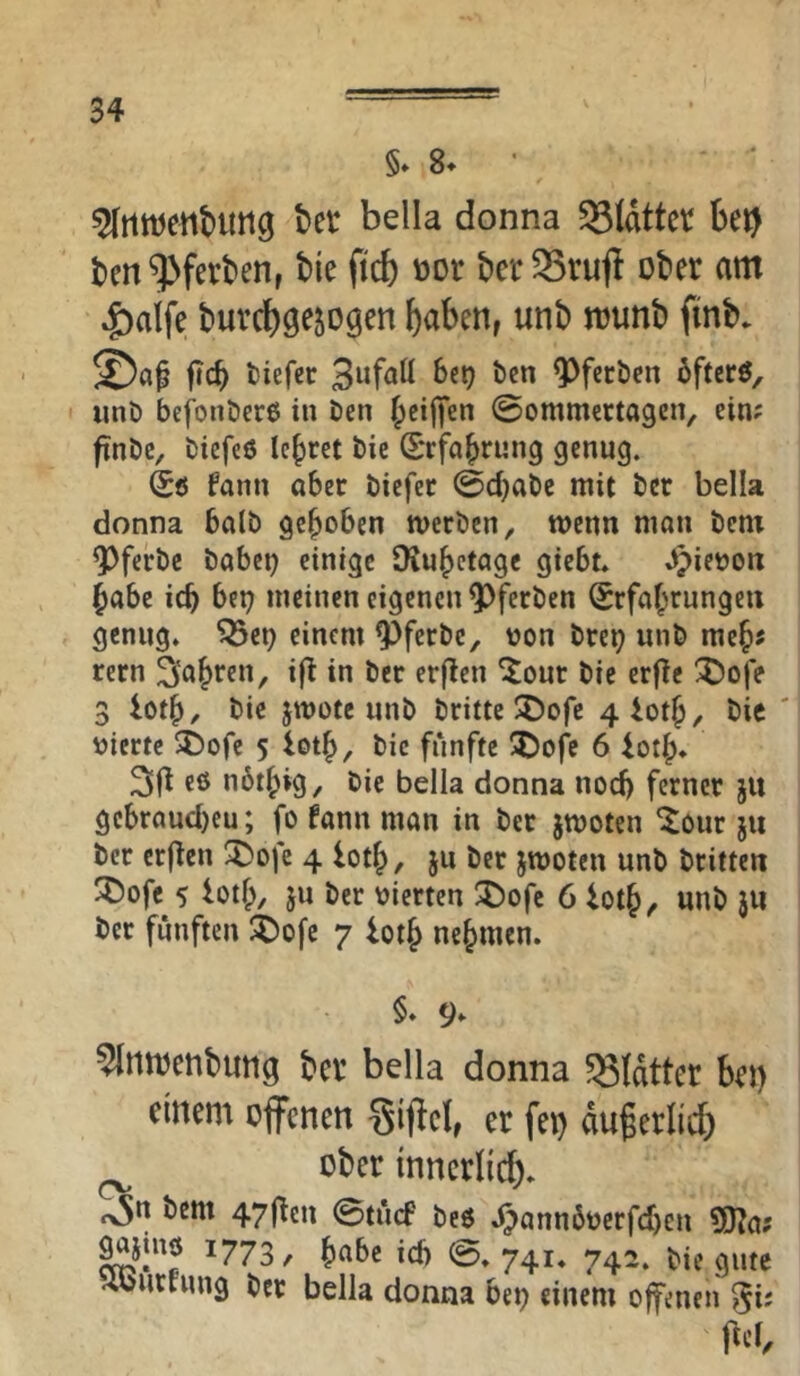 34
§. 8.
Anwendung der bella donna Blätter bey
den Pferden, die sich vor der Brust oder am
Halse durchgezogen haben, und wund sind.
Daß sich dieser Zufall bey den Pferden öfters,
und besonders in den heissen Sommertagen, ein-
finde, dieses lehret die Erfahrung genug.
Es kann aber dieser Schade mit der bella
donna bald gehoben werden, wenn man dem
Pferde dabey einige Ruhetage giebt. Hievon
habe ich bey meinen eigenen Pferden Erfahrungen
genug. Bey einem Pferde, von drey und meh-
rern Jahren, ist in der ersten Tour die erste Dose
3 Loth, die zwote und dritte Dose 4 Loth, die
vierte Dose 5 Loth, die fünfte Dose 6 Loth.
Ist es nöthig, die bella donna noch ferner zu
gebraucheu; so kann man in der zwoten Tour zu
der ersten Dose 4 Loth, zu der zwoten und dritten
Dose 5 Loth, zu der vierten Dose 6 Loth, und zu
der fünften Dose 7 Loth nehmen.
§. 9.
Anwendung der bella donna Blätter bey
einem offenen Fistel, er sey äußerlich
oder innerlich.
In dem 47sten Stück des Hannöverschen Ma-
gazins 1773, habe ich S. 741. 742. die gute
Würkung der bella donna bey einem offenen Fi-
stel,